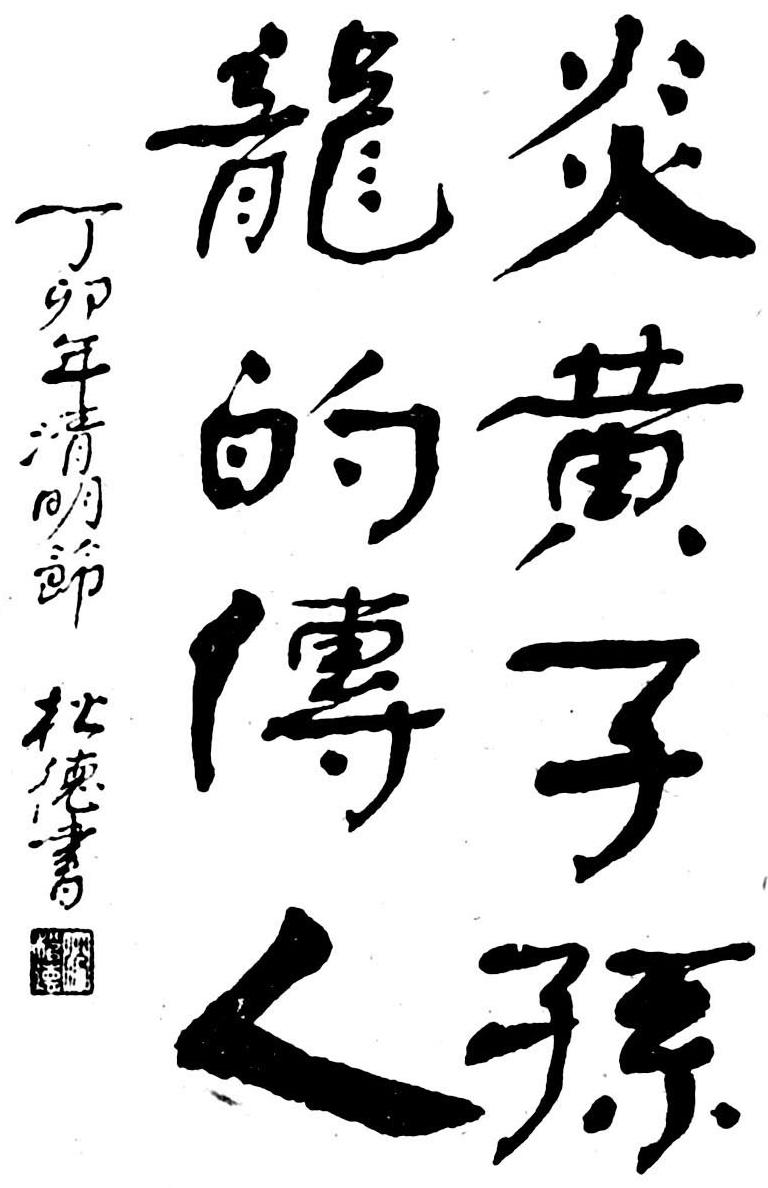 炎黄子孫
龍的傳人
丁卯年清明節 松德書